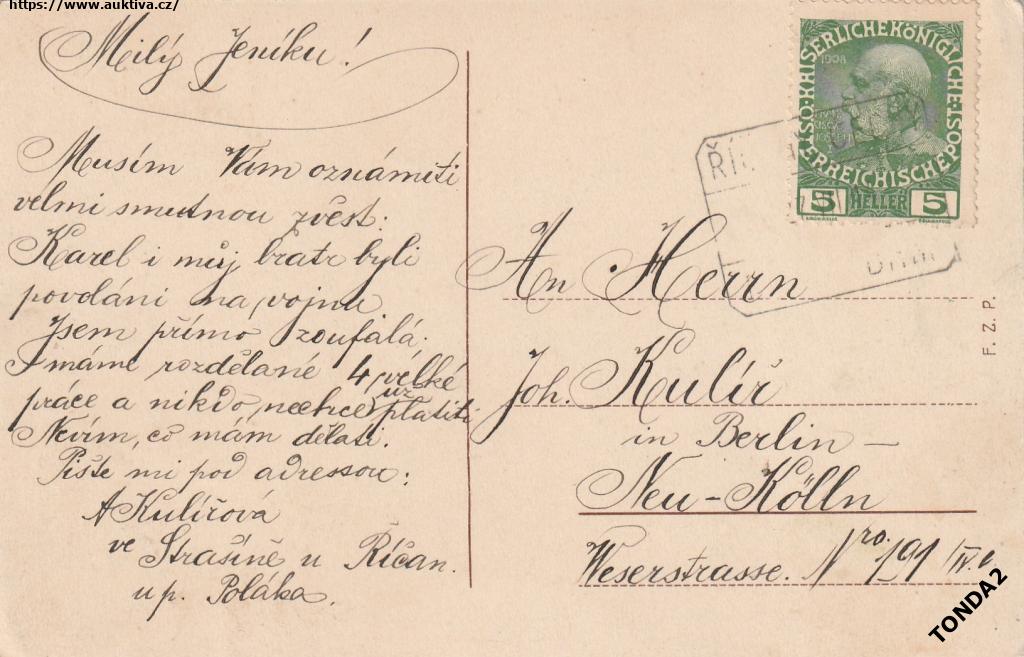 https://www.auktiva.cz/
Milý Jeníku!
Musím Vám oznámiti
velmi smutnou zvěst:
Karel i můj bratr byli
povoláni na vojnu
Jsem přímo zoufalá.
I máme rozdělané 4 velké
práce a nikdo nechce už platiti.
Nevím, co mám dělati.
Pište mi pod adressou:
A Kulířová
ve Strašíně u Říčan.
u p. Poláka.
K.K. ÖSTERREICHISCHE POST
KAISERLICHEKÖNIGLICHE
1908
5 HELLER 5
ŘÍ
An Herrn
Joh. Kulíř
in Berlin –
Neu-Kölln
Weserstrasse. Nro. 191/IV.
F. Z. P.
TONDA2